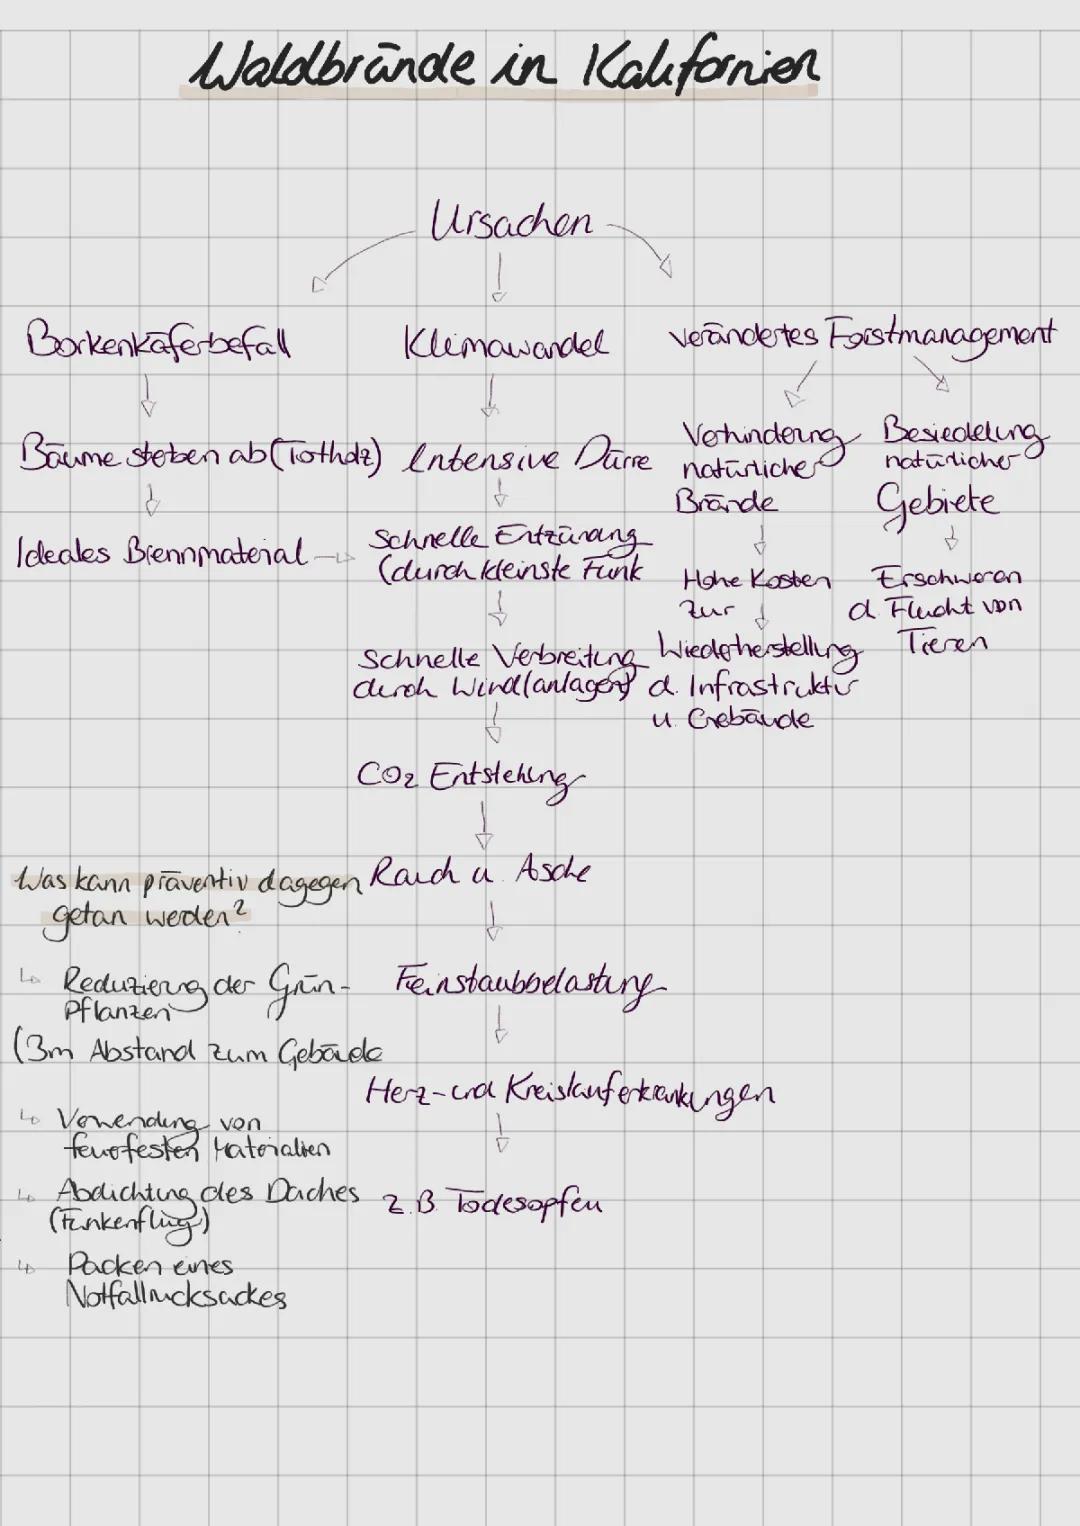 Waldbrände in Kalifornien
Ursachen
Borkenkäferbefall
Klimawandel
verändertes Forstmanagement
Bäume sterben ab (Totholz)
Intensive Dürre
Verhinderung
natürlicher
Brände
Besiedelung
natürlicher
Gebiete
Ideales Brennmaterial
Schnelle Entzündung
(durch kleinste Funk
Hohe Kosten
zur
Wiederherstellung
d. Infrastruktur
u. Gebäude
Erschweren
d. Flucht von
Tieren
Schnelle Verbreitung
durch Wind(anlagen)
CO₂ Entstehung
Rauch u. Asche
Feinstaubbelastung
Herz- und Kreislauferkrankungen
z.B. Todesopfer
Was kann präventiv dagegen
getan werden?
↳ Reduzierung der Grün-
Pflanzen
(3m Abstand zum Gebäude
↳ Verwendung von
feuerfesten Materialien
↳ Abdichtung des Daches
(Funkenflug)
↳ Packen eines
Notfallrucksackes